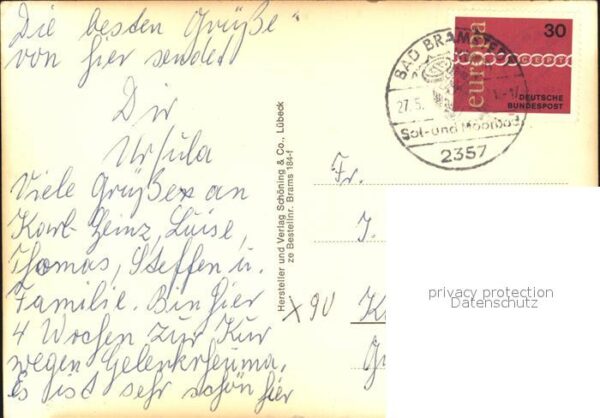 Die besten Grüße
von hier sendet
Dir
Ursula
Viele Grüße an
Karl-Heinz, Luise,
Thomas, Steffen u.
Familie. Bin hier
4 Wochen zur Kur
wegen Gelenkrheuma.
Es ist sehr schön hier
Hersteller und Verlag Schöning & Co., Lübeck
ze Bestellnr. Brams 184-f
x 90
30
europa
DEUTSCHE
BUNDESPOST
BAD BRAMSTEDT
27.5.
Sol-und Moorbad
2357
Fr.
J.
privacy protection
Datenschutz